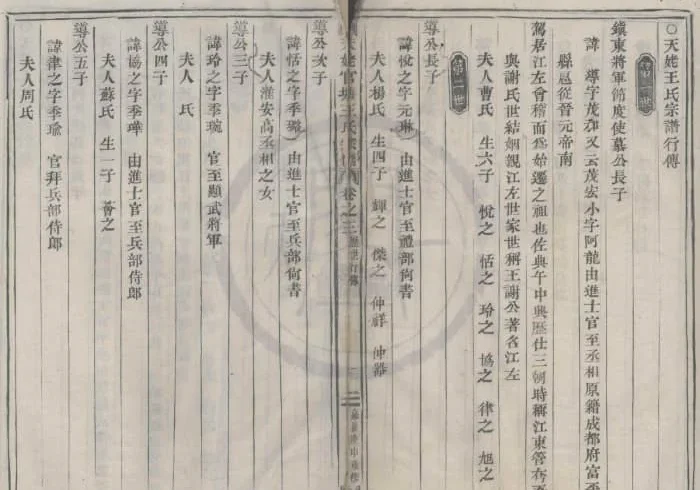 ○天姥王氏宗譜行傳
第一世
鎮東將軍節度使墓公長子
諱 導字茂和又云茂宏小字阿龍由進士官至丞相原籍成都府富
縣扈從晉元帝南
駕居江左會稽而為始遷之祖也佐典午中興歷仕三朝時稱江東管
與謝氏世結姻親江左世家世稱王謝公著名江左
第二世
夫人曹氏 生六子 悅之 恬之 玲之 協之 律之 旭之
導公長子
諱悅之字元琳 由進士官至禮部尚書
夫人楊氏 生四子 輝之 傑之 仲祥 仲器
天姥官塘王氏宗譜 卷之三
二
導公次子
諱恬之字季璐 由進士官至兵部尚書
夫人淮安高丞相之女
導公三子
諱玲之字季琬 官至顯武將軍
夫人 氏
導公四子
諱協之字季瑋 由進士官至兵部侍郎
夫人蘇氏 生一子 薈之
導公五子
諱律之字季瑜 官拜兵部侍郎
夫人周氏